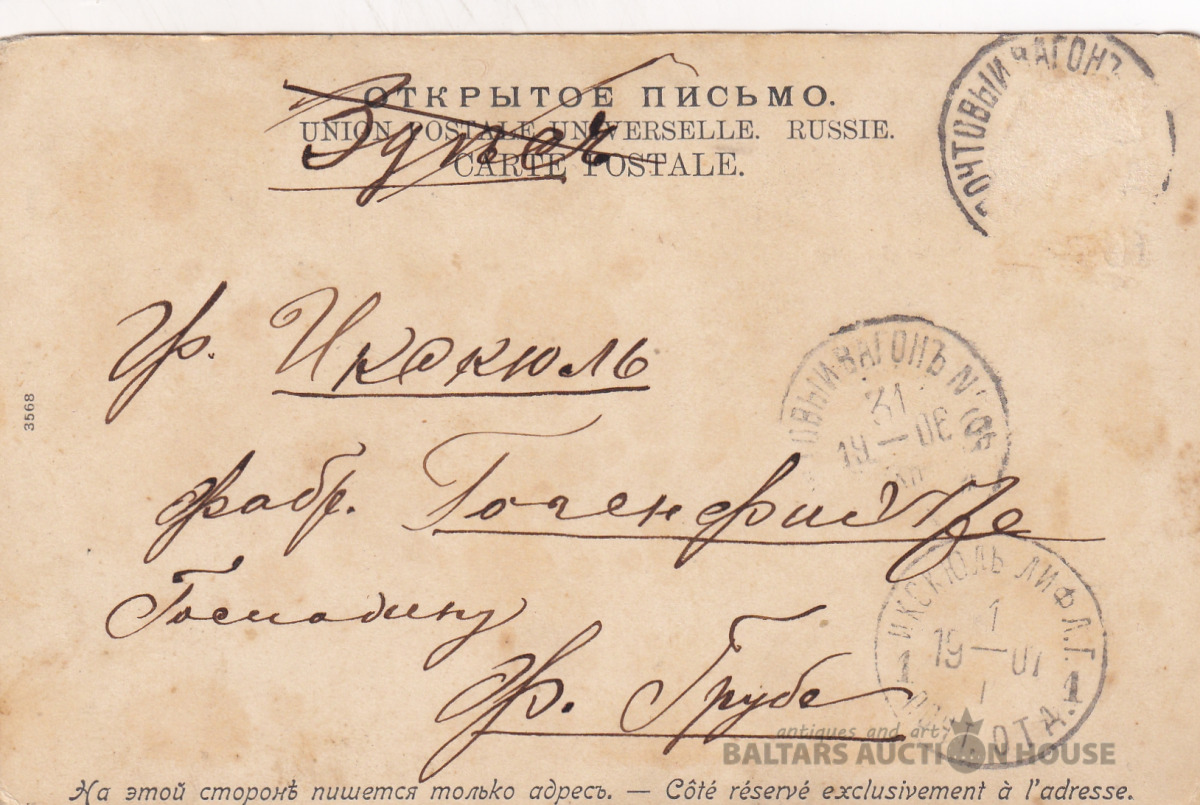 ОТКРЫТОЕ ПИСЬМО.
UNION POSTALE UNIVERSELLE. RUSSIE.
CARTE POSTALE.
ПОЧТОВЫЙ ВАГОНЪ
гр. Икскюль
ОВЫЙ ВАГОНЪ №
31
19—06
XII
3568
фабр.
Господину
Фр. Грубе
ИКСКЮЛЬ ЛИФЛ.Г.
1
19—07
I
1 1
antiques and arty
BALTARS AUCTION HOUSE
На этой сторонѣ пишется только адресъ. — Côté réservé exclusivement à l'adresse.